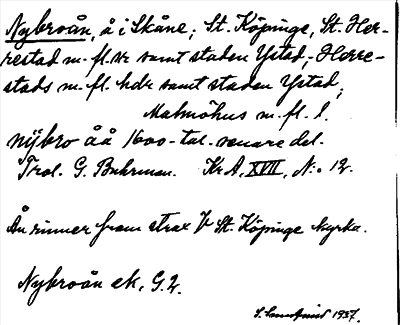 Nybroån, å i Skåne; St. Köpinge, St. Her-
restad m. fl. sr samt staden Ystad,- Herre-
stads m. fl. hdr samt staden Ystad;
Malmöhus m. fl. l.
nÿbro åå 1600-tal. senare del.
Trol. G. Buhrman. Kr A, XVII, N:o 12.
Ån rinner fram strax V St. Köpinge kyrka.
Nybroån ek. G.2.
1937.